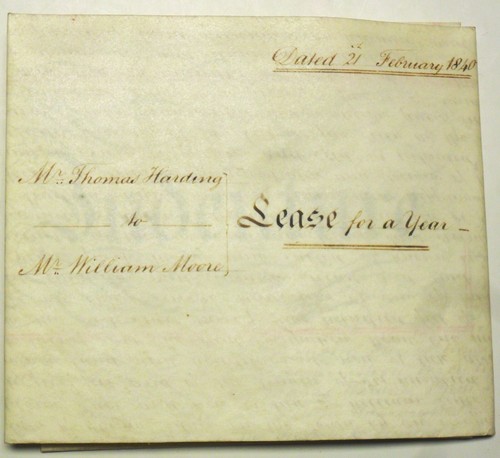 Dated 21st February 1840
Mr. Thomas Harding
to
Mr. William Moore
Lease for a Year